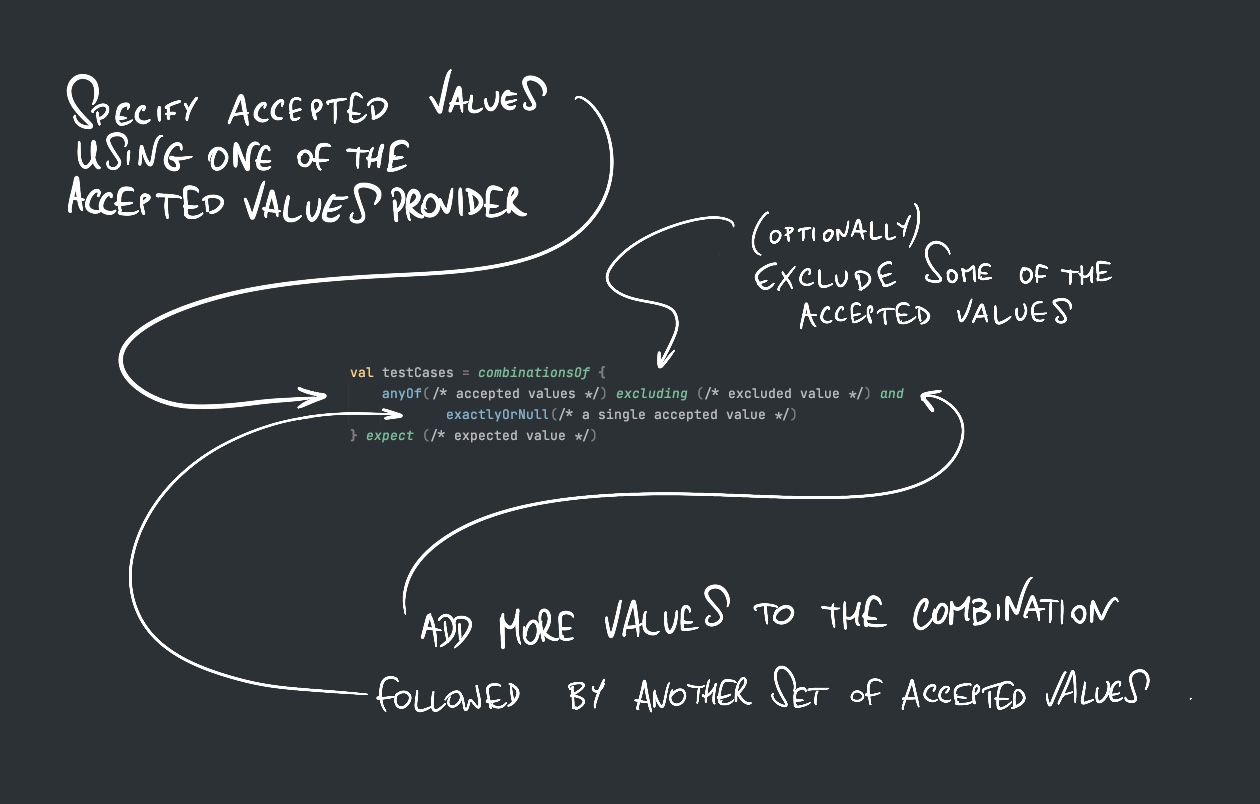 SPECIFY ACCEPTED VALUES
USING ONE OF THE
ACCEPTED VALUES PROVIDER
(OPTIONALLY)
EXCLUDE SOME OF THE
ACCEPTED VALUES
val testCases = combinationsOf {
    anyOf(/* accepted values */) excluding (/* excluded value */) and
            exactlyOrNull(/* a single accepted value */)
} expect (/* expected value */)
ADD MORE VALUES TO THE COMBINATION
FOLLOWED BY ANOTHER SET OF ACCEPTED VALUES .